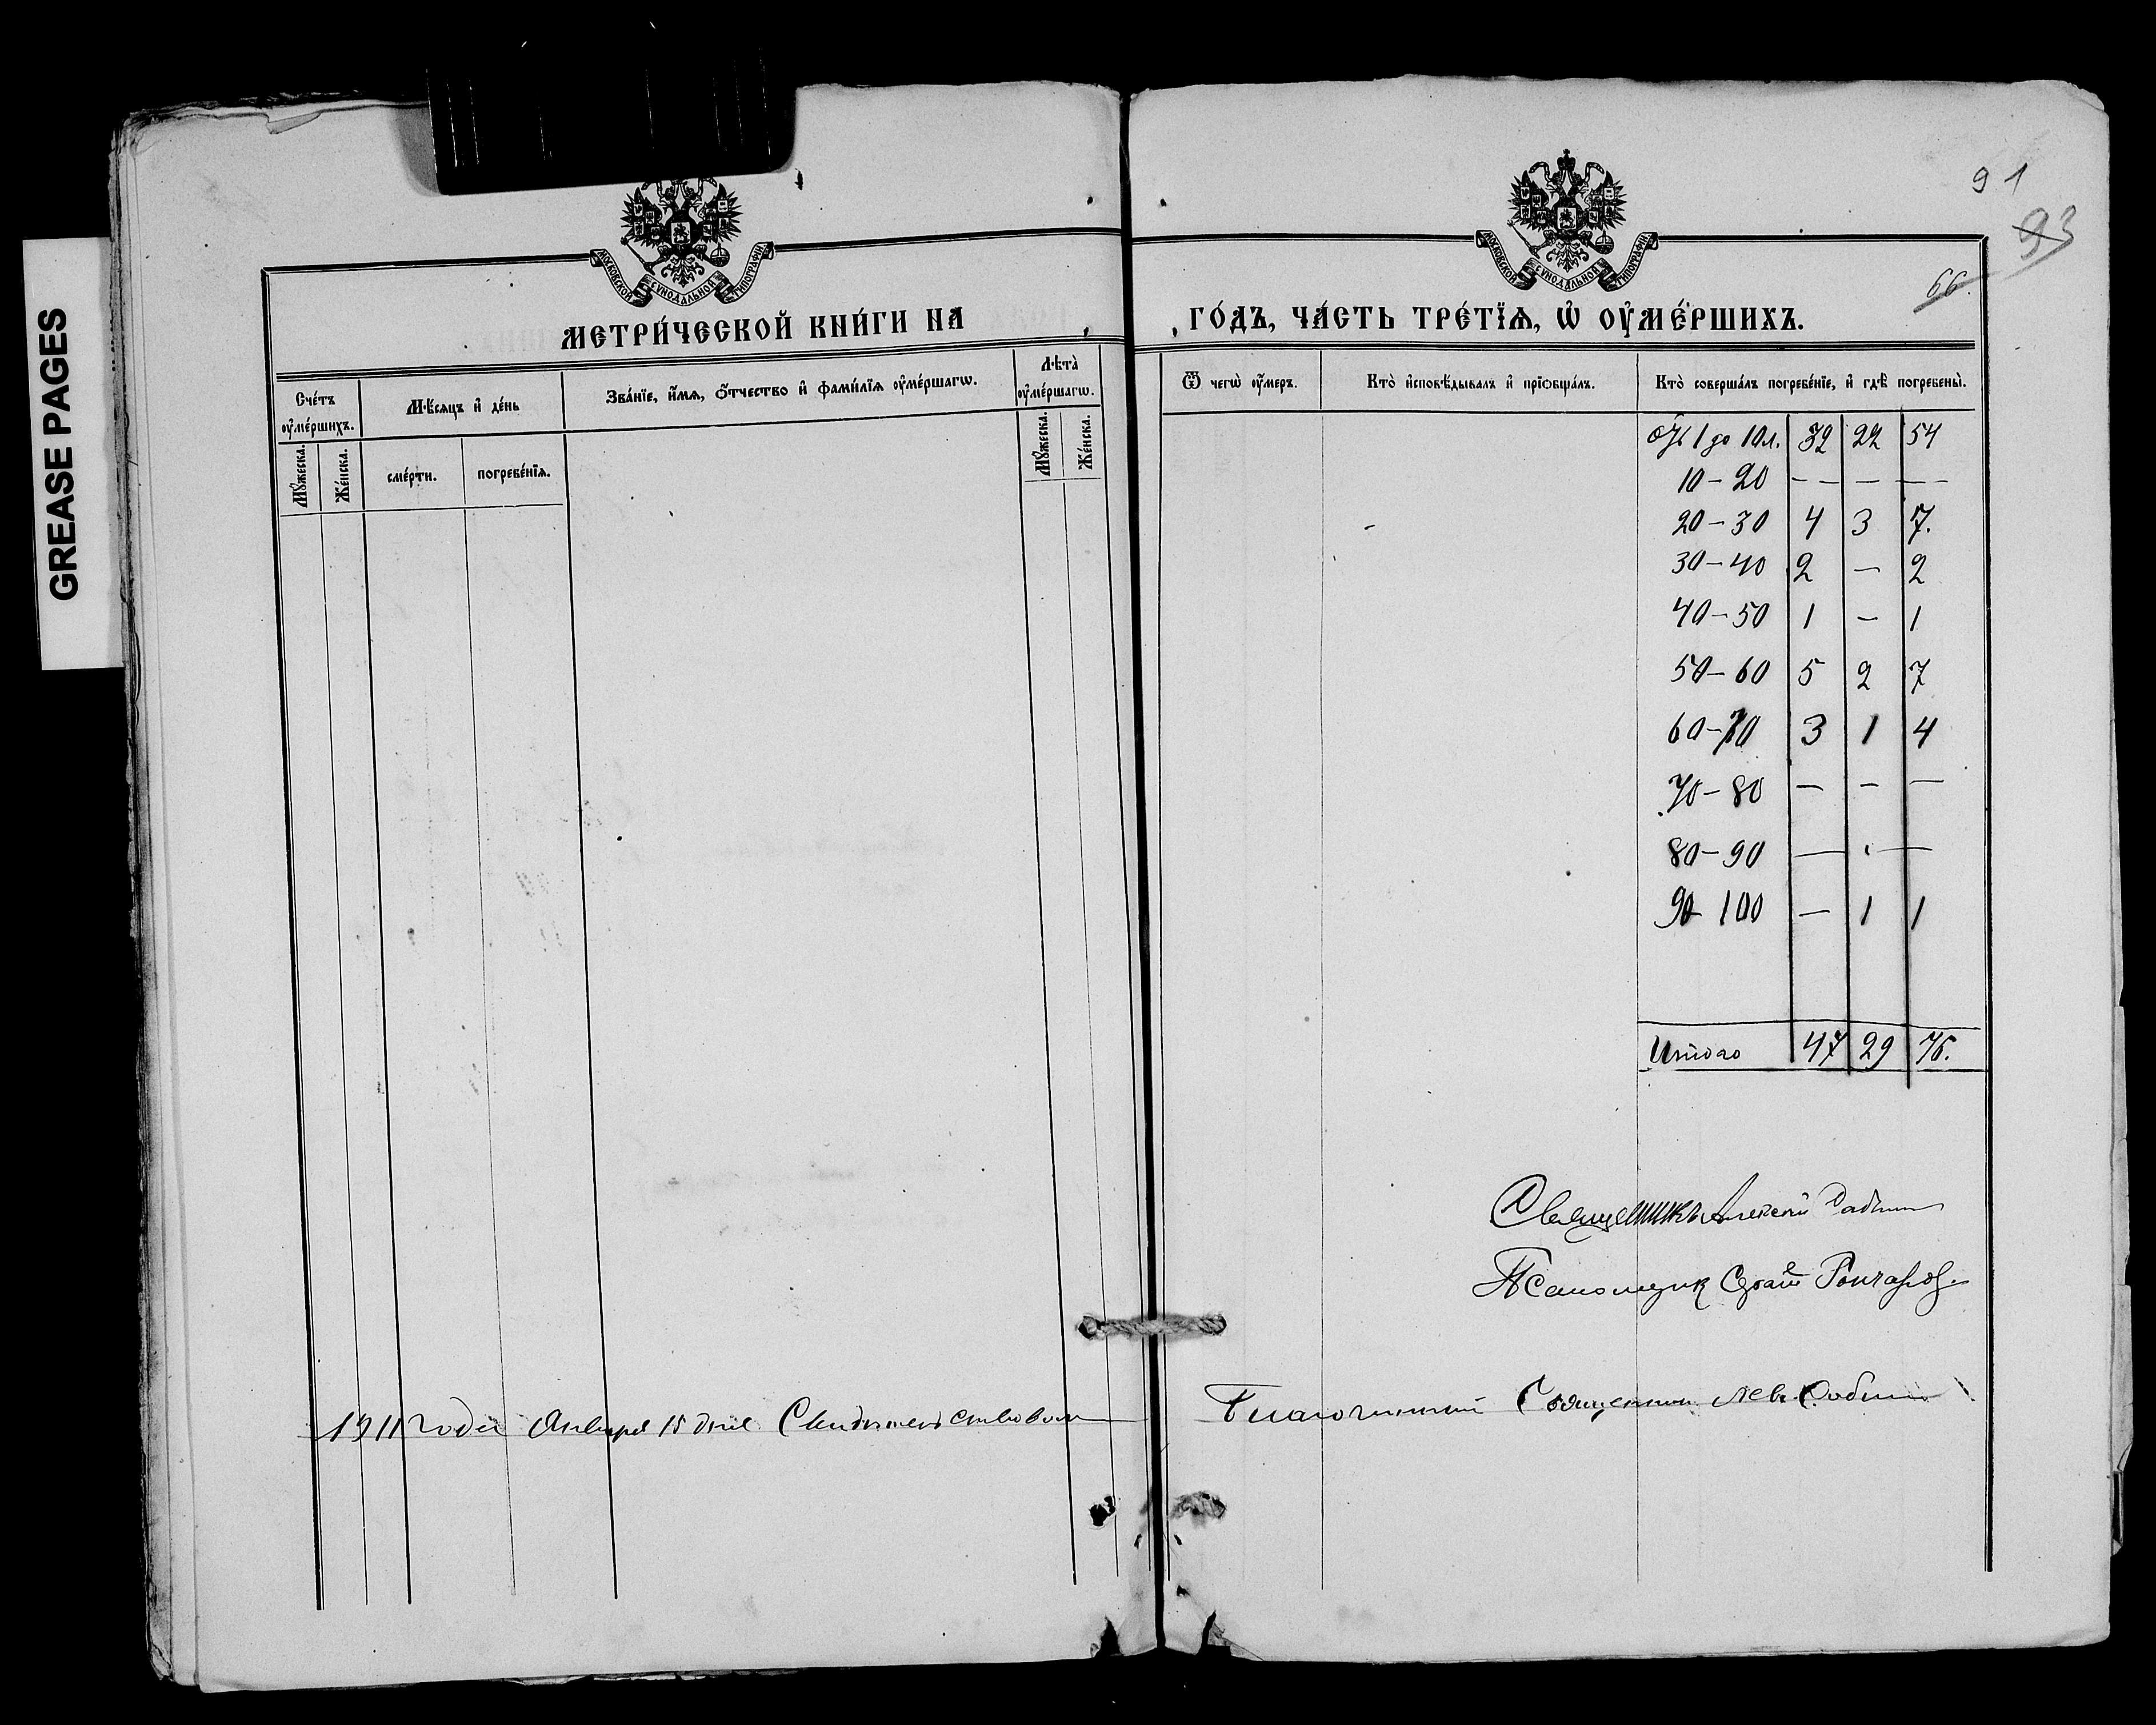 GREASE PAGES
91
93
66.
МОСКОВСКОЙ СѴНОДАЛЬНОЙ ТИПОГРАФІИ
МОСКОВСКОЙ СѴНОДАЛЬНОЙ ТИПОГРАФІИ
МЕТРИ́ЧЕСКОЙ КНИ́ГИ НА
ГО́ДЪ, ЧА́СТЬ ТРЕ́ТЇѦ, Ѡ҆ ОУ҆МЕ́РШИХЪ.
Сче́тъ оу҆ме́ршихъ.
Мꙋ́жеска.
Же́нска.
Мѣ́сяцъ и҆ де́нь
сме́рти.
погребе́нїѧ.
Зва́нїе, и҆́мѧ, ѻ҆́тчество и҆ фами́лїѧ оу҆ме́ршагѡ.
Лѣ́та оу҆ме́ршагѡ.
Мꙋ́жеска.
Же́нска.
Ѿ чегѡ̀ оу҆́меръ.
Кто̀ и҆сповѣ́дывалъ и҆ прїѻбща́лъ.
Кто̀ соверша́лъ погребе́нїе, и҆ гдѣ̀ погребены̀.
От 1 до 10 л. 32 22 54
10 – 20 – – – –
20 – 30 4 3 7.
30 – 40 2 – 2
40 – 50 1 – 1
50 – 60 5 2 7
60 – 70 3 1 4
70 – 80 – – –
80 – 90 — —
90 – 100 – 1 1
Итого 47 29 76.
Священникъ Алексій
Псаломщик Гончаров.
1911 года Января 15 дня Свидетельствовал
Благочинный Священник Лев